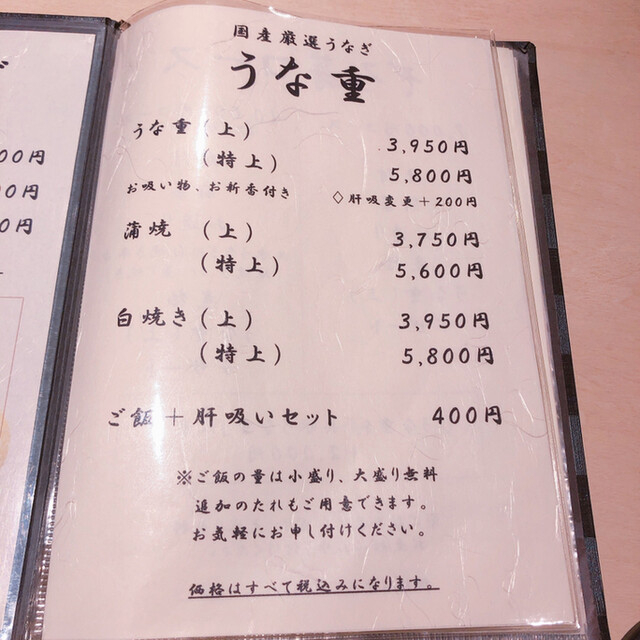 国産厳選うなぎ
うな重
うな重(上) 3,950円
(特上) 5,800円
お吸い物、お新香付き ◇肝吸変更+200円
蒲焼 (上) 3,750円
(特上) 5,600円
白焼き(上) 3,950円
(特上) 5,800円
ご飯+肝吸いセット 400円
※ご飯の量は小盛り、大盛り無料
追加のたれもご用意できます。
お気軽にお申し付けください。
価格はすべて税込みになります。